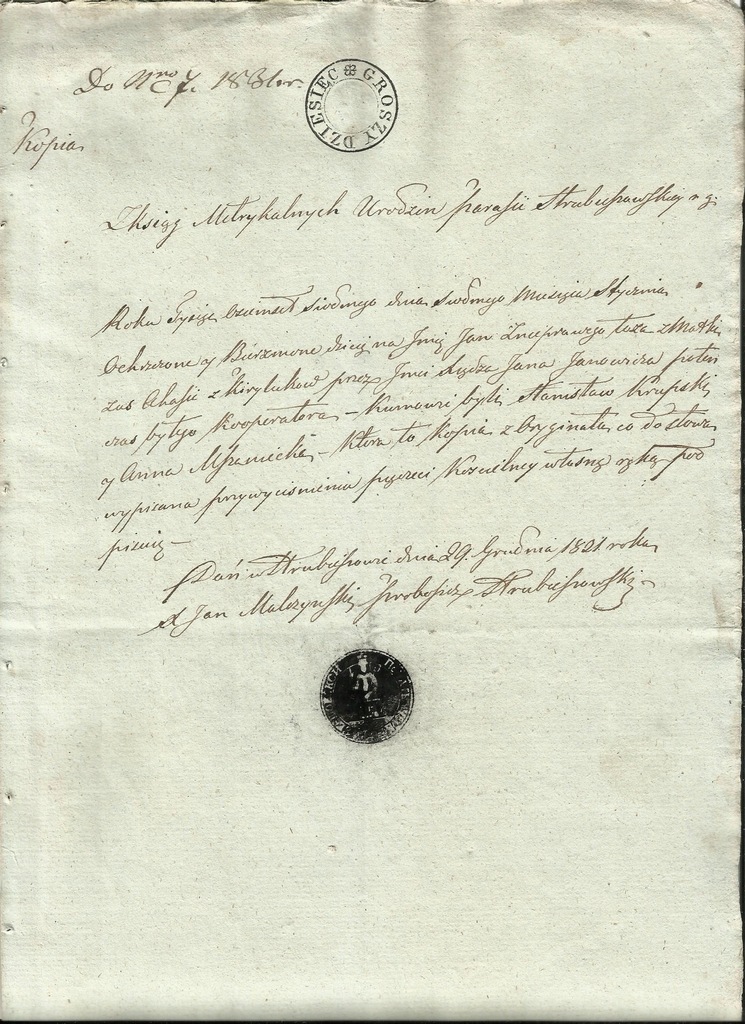 Do Nro 7. 1831 r.
DZIESIĘĆ GROSZY
Kopia
Z ksiąg Metrykalnych Urodzin Parafii Hrubieszowskiey
Roku Tysiąc Osiemset siodmego dnia siodmego Miesiąca Stycznia
Ochrzczone y Bierzmone dziecię na Imię Jan z Nieprawego łoża z Matki
zaś Ahafii z Kirylukow przez Imci Xiędza Jana Janowicza poten
czas byłego Kooperatora – Kumowie byli Stanisław Krupski
y Anna – Ktora to Kopia z Oryginału co do słowa
wypisana przy wyciśnieniu pieczęci Koscielney własną ręką pod
pisuię –
Dań w Hrubieszowie dnia 29. Grudnia 1821 roku
X Jan Malczynski Proboszcz Hrubieszowski